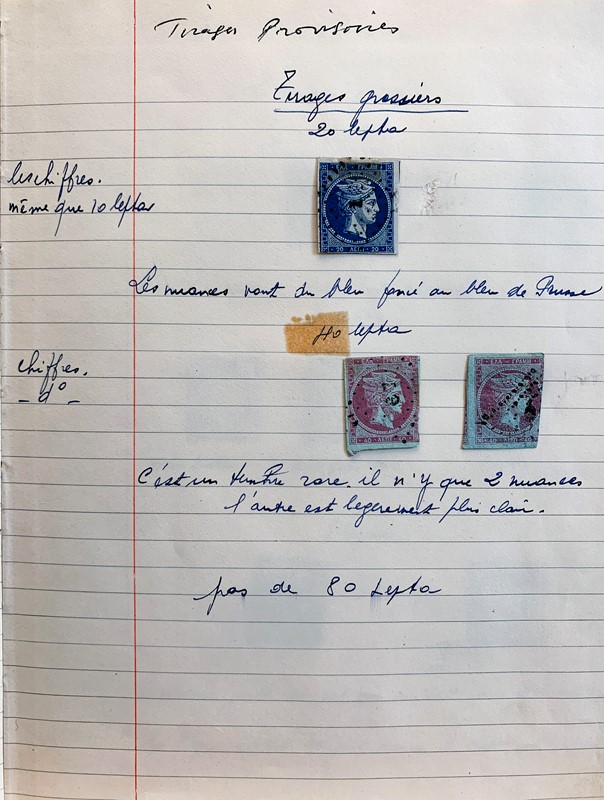 Tirages Provisoires
Tirages grossiers
20 lepta
les chiffres.
même que 10 lepta
20 ΛΕΠ. 20
Les nuances vont du bleu foncé au bleu de Prusse
40 lepta
chiffres.
- d° -
ΕΛΛ ΓΡΑΜΜ
40 ΛΕΠΤ
ΕΛΛ ΓΡΑΜΜ
C'est un timbre rare. il n'y que 2 nuances
l'autre est legerement plus clair.
pas de 80 Lepta